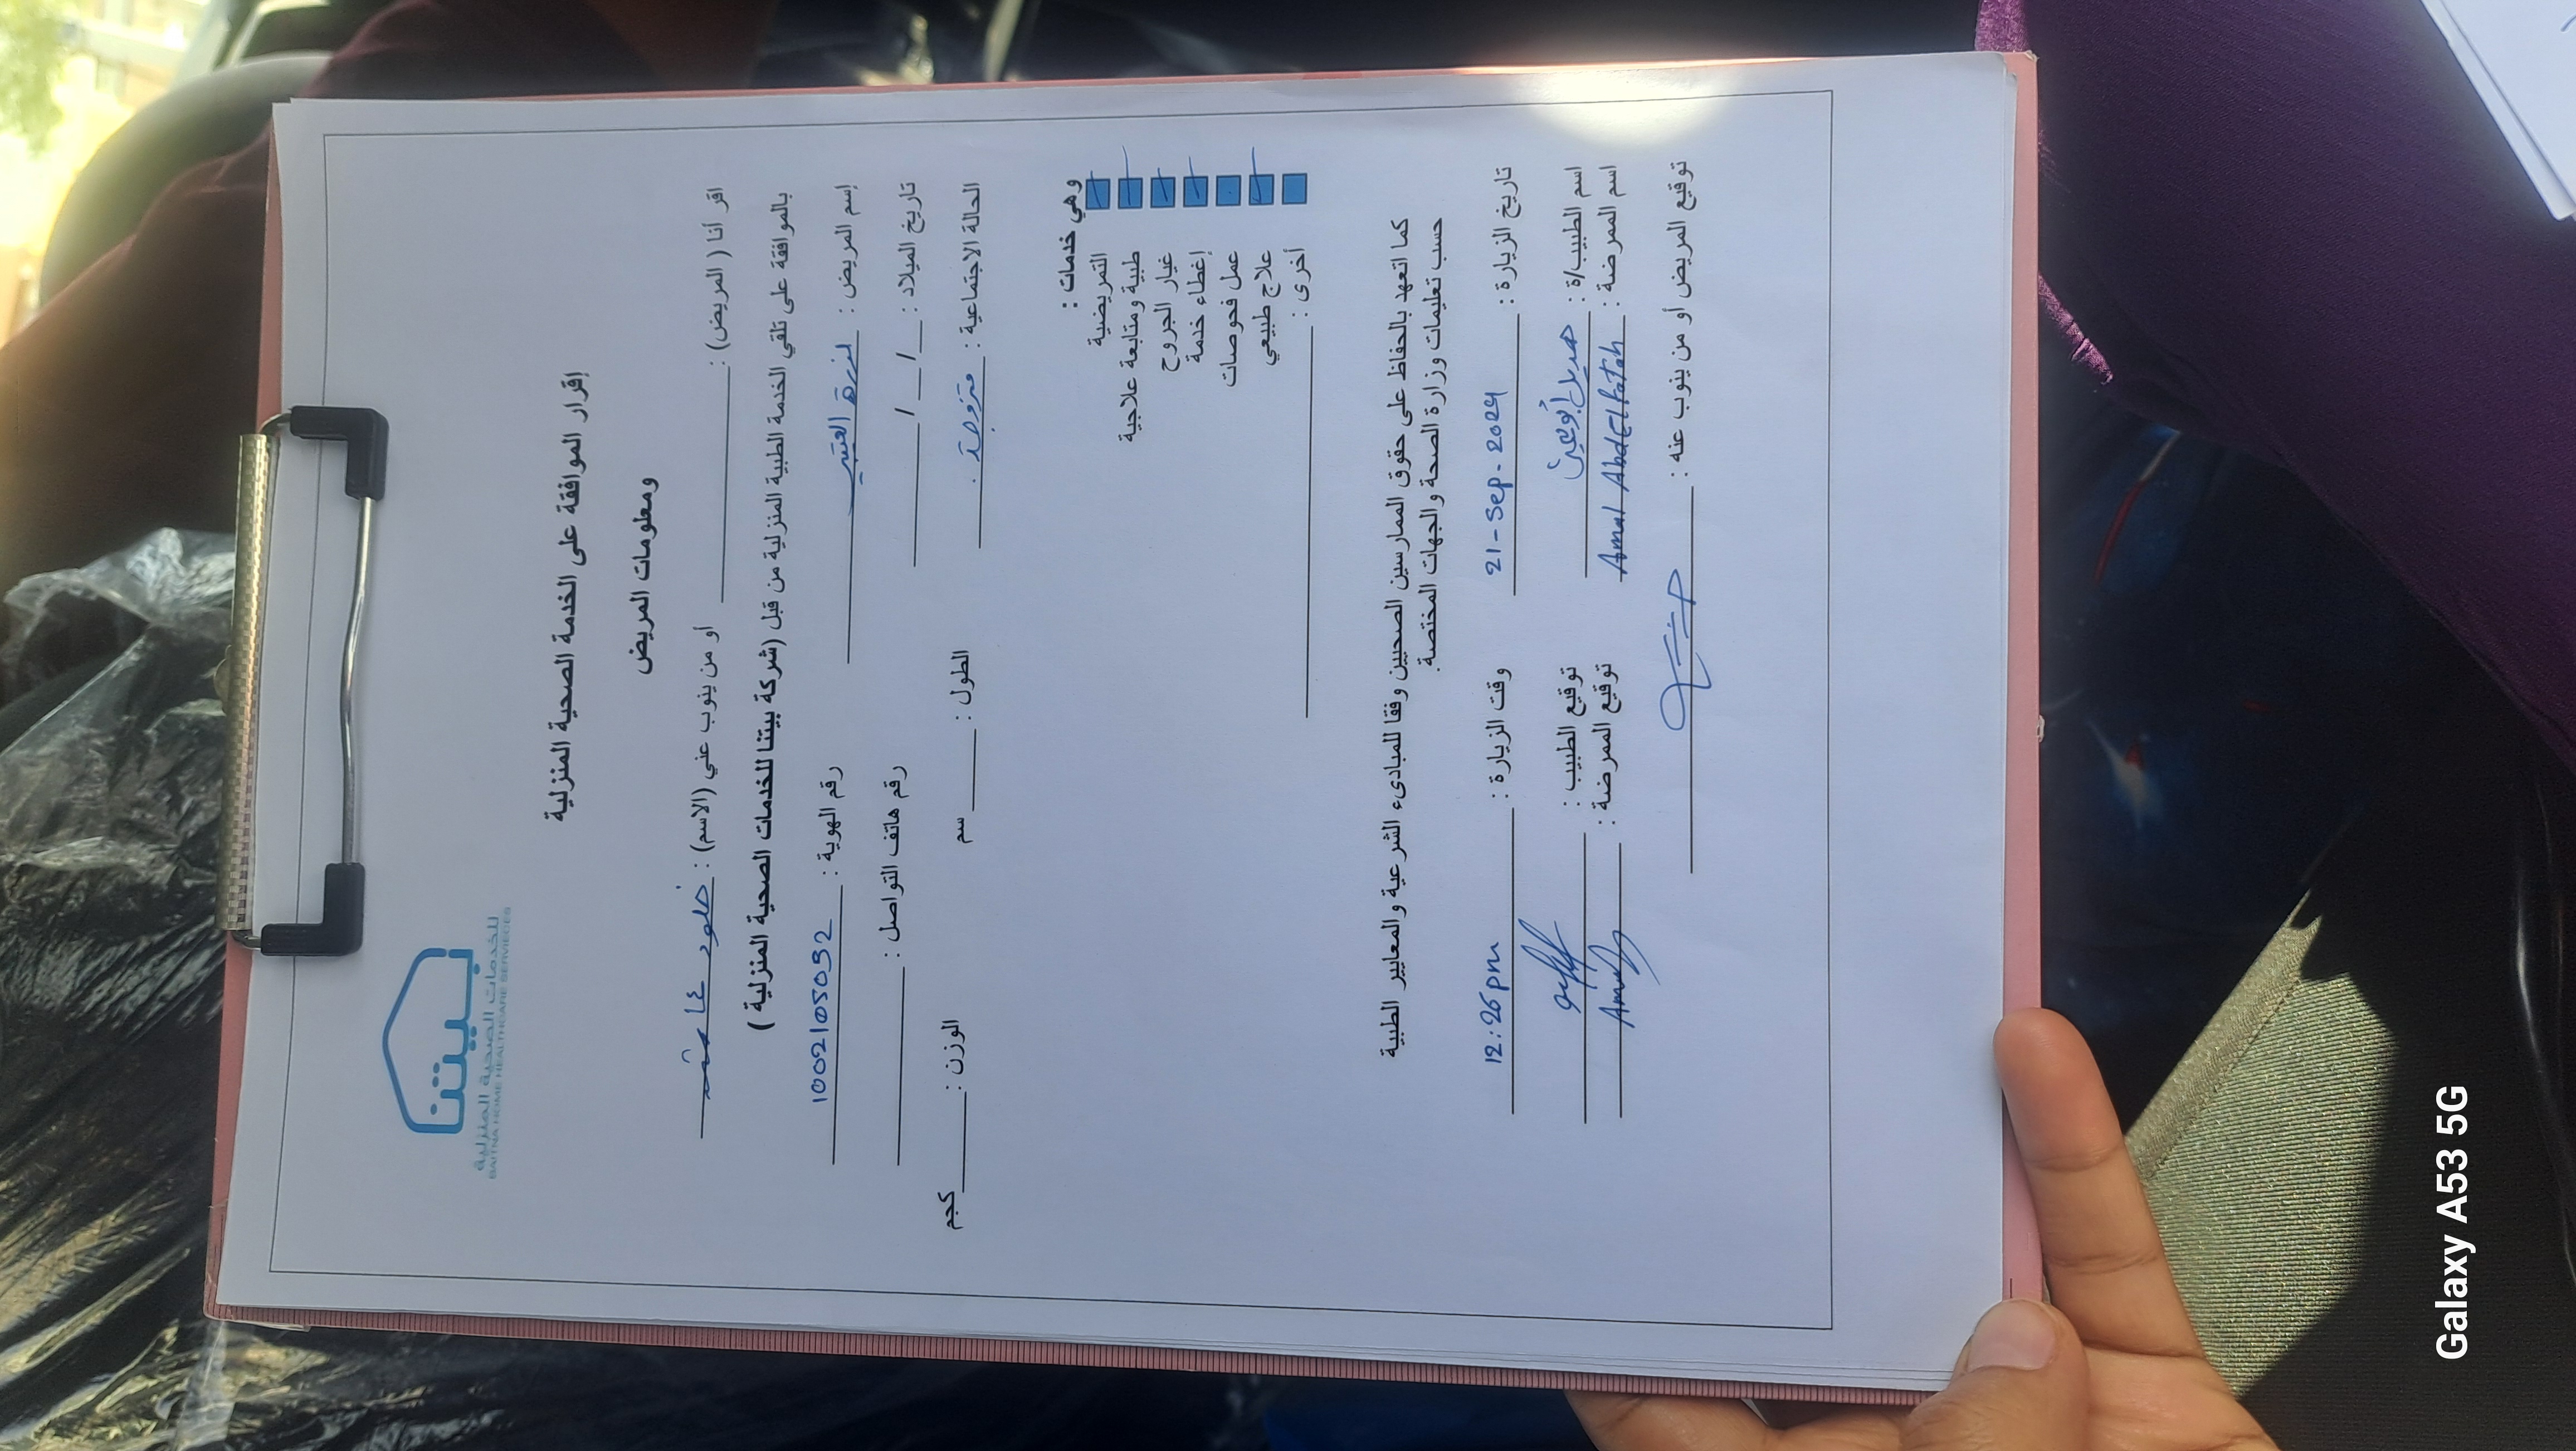 بيتنا
للخدمات الصحية المنزلية
BAITNA HOME HEALTHCARE SERVIECES
إقرار الموافقة على الخدمة الصحية المنزلية
ومعلومات المريض
اقر أنا ( المريض) : أو من ينوب عني (الاسم) : خلود عائشة
بالموافقة على تلقي الخدمة الطبية المنزلية من قبل (شركة بيتنا للخدمات الصحية المنزلية )
إسم المريض : رقم الهوية : 1002105092
تاريخ الميلاد : __/__/ رقم هاتف التواصل :
الحالة الاجتماعية : متزوجة الطول : سم الوزن : كجم
وهي خدمات :
التمريضية
طبية ومتابعة علاجية
غيار الجروح
إغطاء خدمة
عمل فحوصات
علاج طبيعي
أخرى :
كما اتعهد بالحفاظ على حقوق الممارسين الصحيين وفقا للمبادىء الشرعية والمعايير الطبية
حسب تعليمات وزارة الصحة والجهات المختصة.
تاريخ الزيارة : 21-Sep-2024 وقت الزيارة : 12:26pm
اسم الطبيب/ة : هديل توقيع الطبيب :
اسم الممرضة : Amal Abdelfatah توقيع الممرضة : Amal
توقيع المريض أو من ينوب عنه :
Galaxy A53 5G